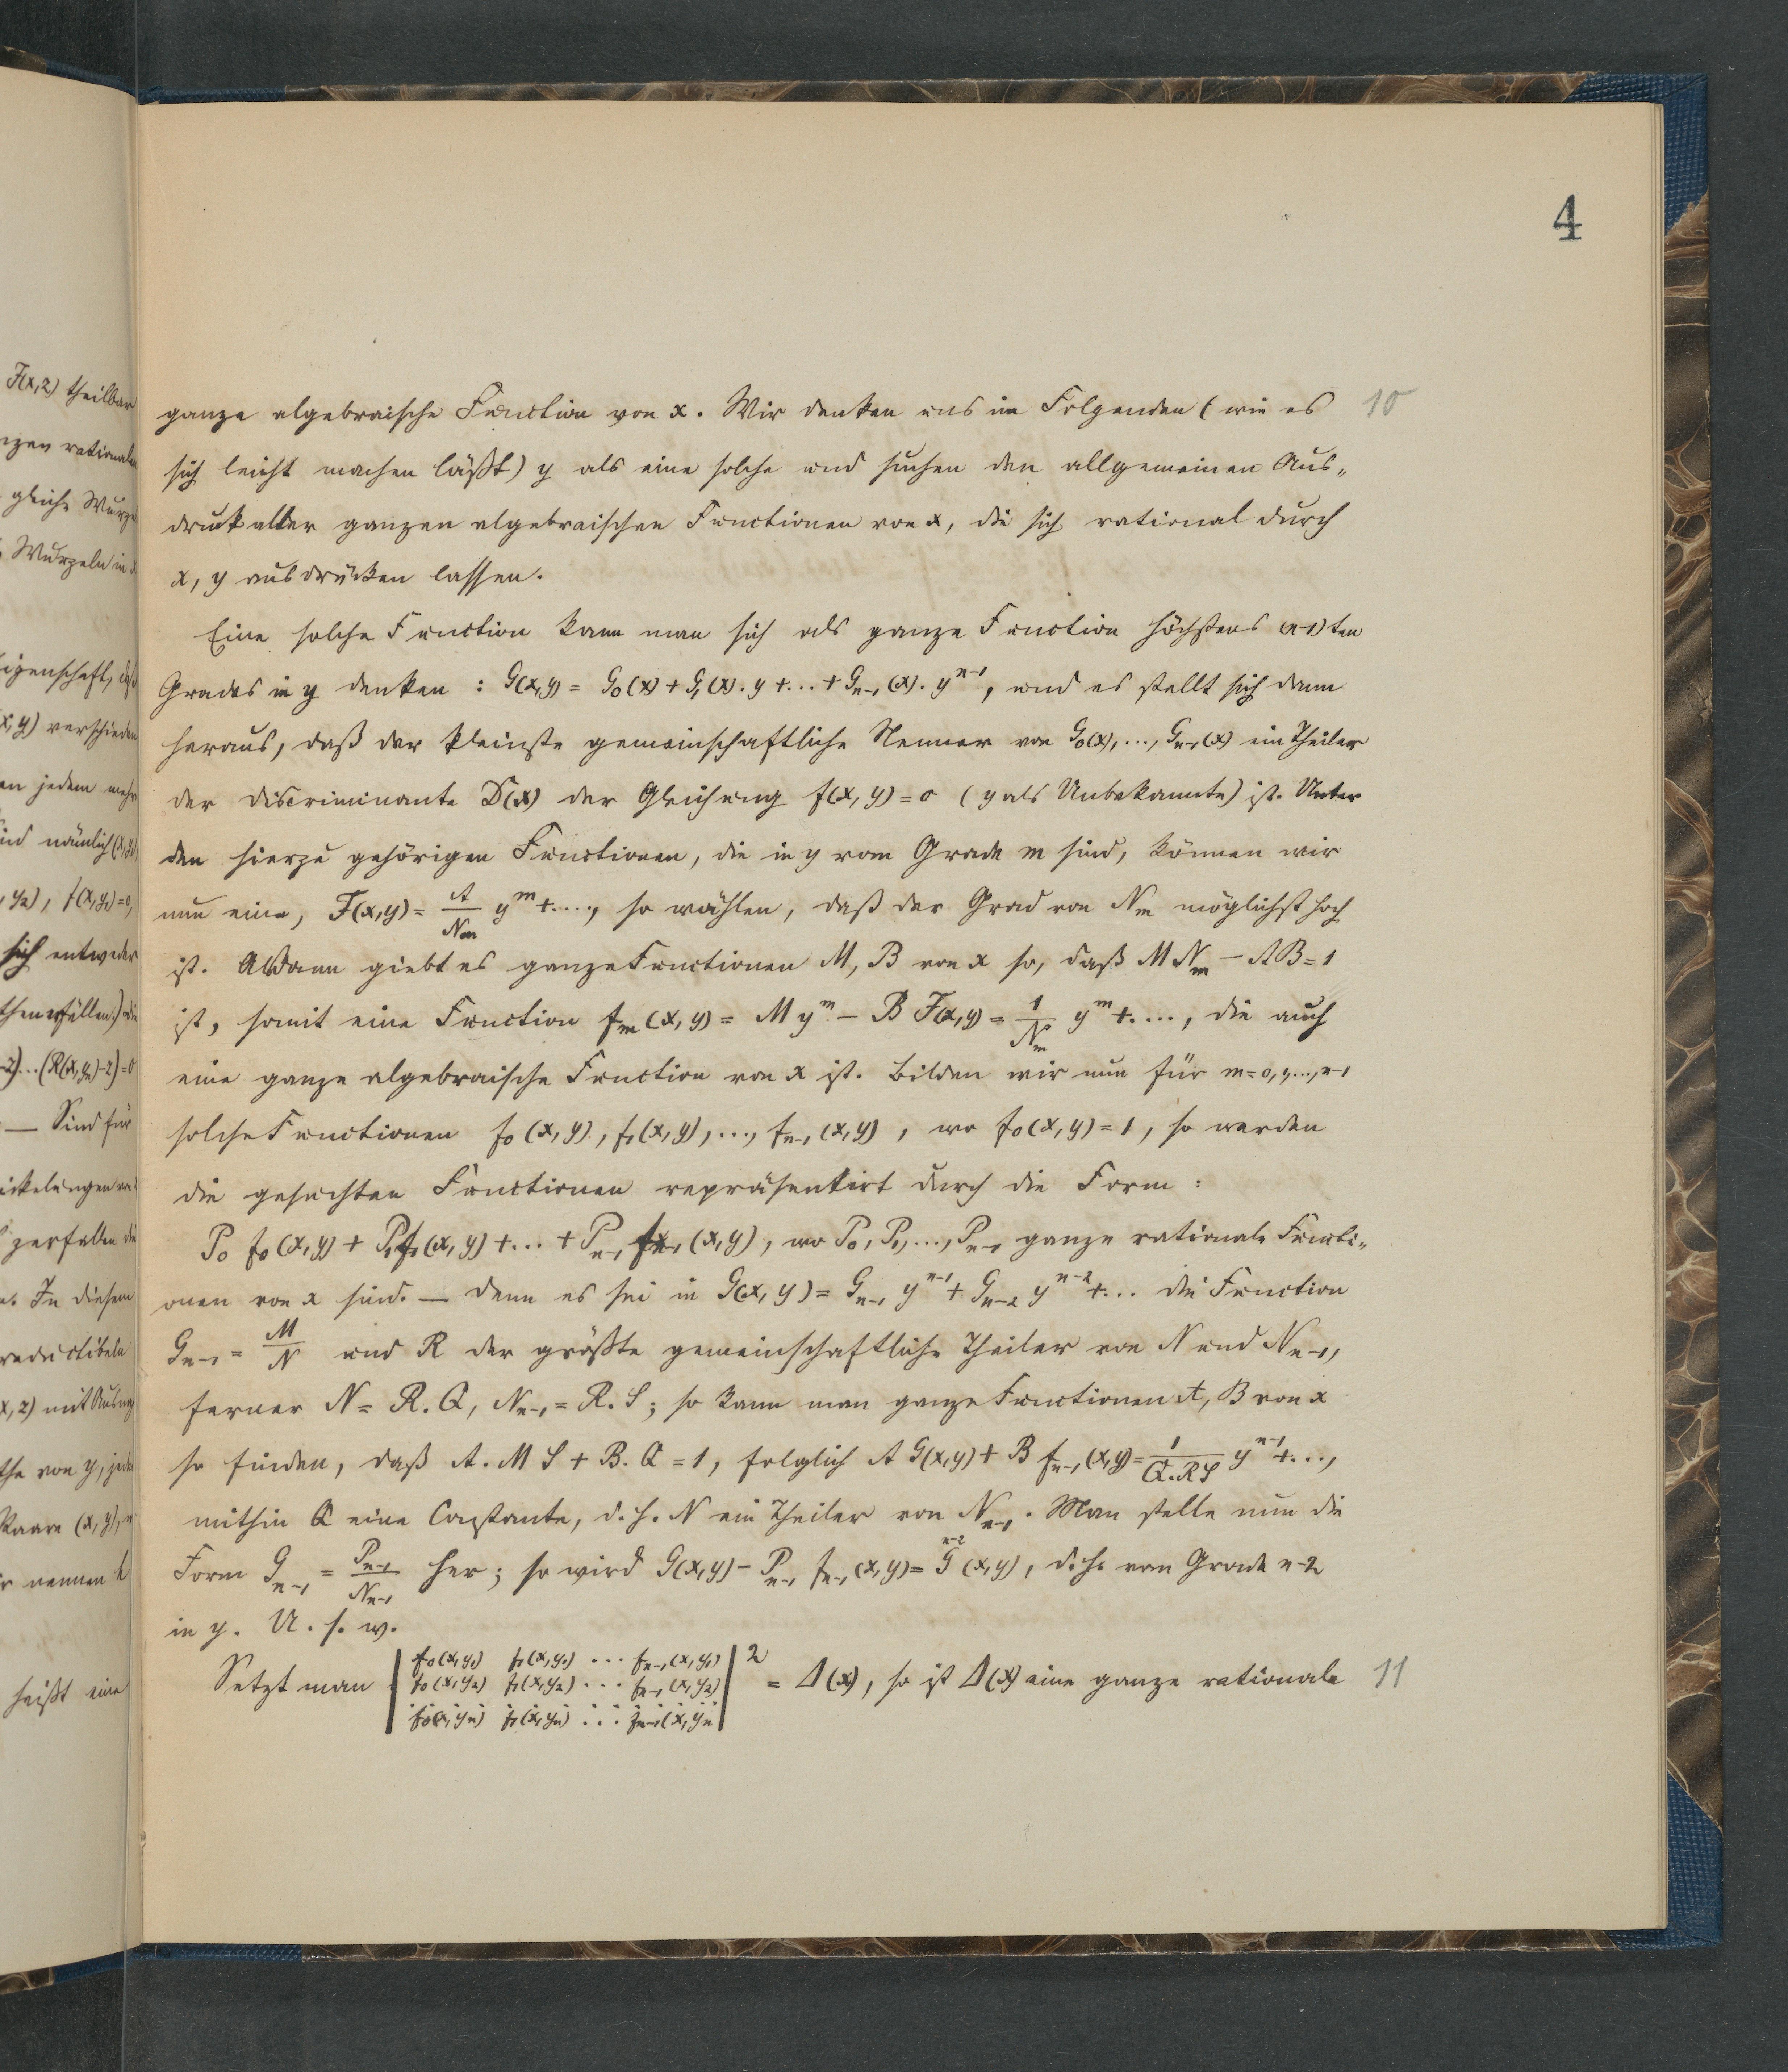 4
ganze algebraische Function von x. Wir denken uns im Folgenden (wie es 10
sich leicht machen läßt) y als eine solche und suchen den allgemeinen Aus„
druck aller ganzen algebraischen Functionen von x, die sich rational durch
x, y ausdrücken lassen.
Eine solche Function kann man sich als ganze Function höchstens (n-1)ten
Grades in y denken : G(x,y) = G₀(x) + G₁(x).y +...+ Gₙ₋₁(x).yⁿ⁻¹, und es stellt sich dann
heraus, daß der kleinste gemeinschaftliche Nenner von G₀(x),..., Gₙ₋₁(x) ein Theiler
der Discriminante D(x) der Gleichung f(x,y) = 0 (y als Unbekannte) ist. Unter
den hierzu gehörigen Functionen, die in y vom Grade m sind, können wir
nun eine, F(x,y) = A/Nₘ yᵐ +...., so wählen, daß der Grad von Nₘ möglichst hoch
ist. Alsdann giebt es ganze Functionen M, B von x so, daß M Nₘ − AB = 1
ist, somit eine Function fₘ(x,y) = M yᵐ − B F(x,y) = 1/Nₘ yᵐ +...., die auch
eine ganze algebraische Function von x ist. Bilden wir nun für m = 0, 1,..., n-1
solche Functionen f₀(x,y), f₁(x,y),..., fₙ₋₁(x,y), wo f₀(x,y) = 1, so werden
die gesuchten Functionen repräsentirt durch die Form :
P₀ f₀(x,y) + P₁f₁(x,y) +... + Pₙ₋₁ fₙ₋₁(x,y), wo P₀, P₁,..., Pₙ₋₁ ganze rationale Functi„
onen von x sind. — Denn es sei in G(x,y) = Gₙ₋₁ yⁿ⁻¹ + Gₙ₋₂ yⁿ⁻² +... die Function
Gₙ₋₁ = M/N und R der größte gemeinschaftliche Theiler von N und Nₙ₋₁,
ferner N = R.Q, Nₙ₋₁ = R.S ; so kann man ganze Functionen A, B von x
so finden, daß A.M S + B.Q = 1, folglich A G(x,y) + B fₙ₋₁(x,y) = 1/Q.RS yⁿ⁻¹ +...,
mithin Q eine Constante, d.h. N ein Theiler von Nₙ₋₁. Man stelle nun die
Form Gₙ₋₁ = Pₙ₋₁/Nₙ₋₁ her ; so wird G(x,y) − Pₙ₋₁ fₙ₋₁(x,y) = Gⁿ⁻²(x,y), d.h. vom Grade n-2
in y. U. s. w.
Setzt man | f₀(x,y₁) f₁(x,y₁) ... fₙ₋₁(x,y₁) |² = Δ(x), so ist Δ(x) eine ganze rationale 11
f₀(x,y₂) f₁(x,y₂) ... fₙ₋₁(x,y₂)
f₀(x,yₙ) f₁(x,yₙ) ... fₙ₋₁(x,yₙ